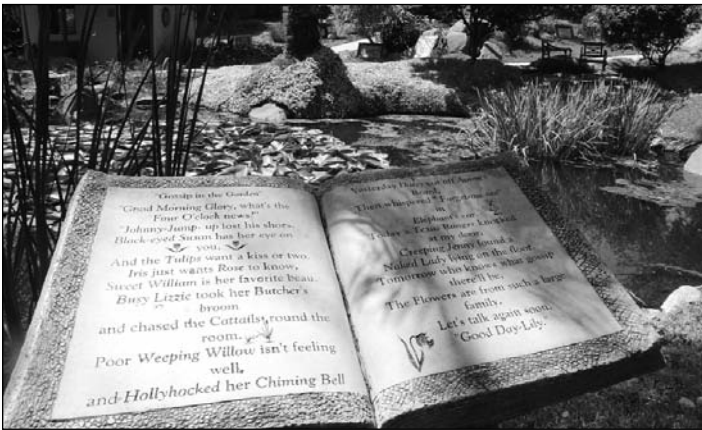 "Gossip in the Garden"
"Good Morning Glory, what's the
Four O'clock news?"
"Johnny-Jump- up lost his shoes,
Black-eyed Susan has her eye on
you,
And the Tulips want a kiss or two.
Iris just wants Rose to know,
Sweet William is her favorite beau.
Busy Lizzie took her Butcher's
broom
and chased the Cattails, round the
room.
Poor Weeping Willow isn't feeling
well,
and Hollyhocked her Chiming Bell
Yesterday Daisy cut off
Beard,
Then whispered " Forget-me-not"
in
Elephant's ear.
Today a Texas Ranger knocked
at my door,
Creeping Jenny found a
Naked Lady lying on the floor.
Tomorrow who knows what gossip
there'll be,
The Flowers are from such a large
family,
Let's talk again soon,
"Good Day-Lily.